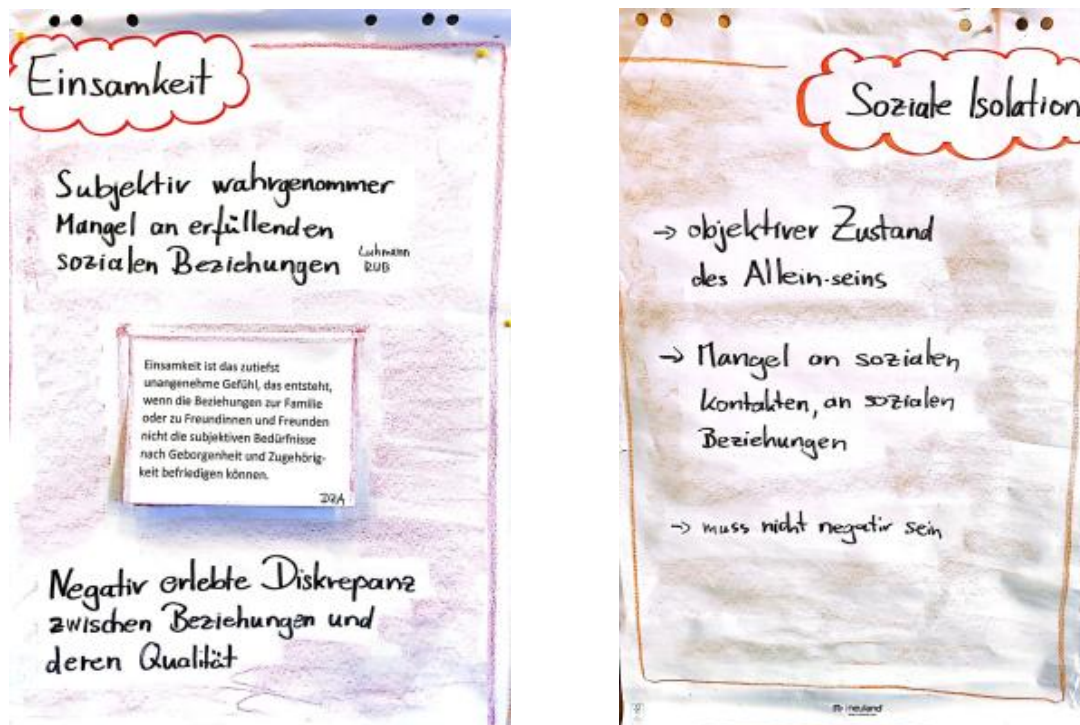 Einsamkeit
Subjektiv wahrgenommer
Mangel an erfüllenden
sozialen Beziehungen
Luhmann
RUB
Einsamkeit ist das zutiefst
unangenehme Gefühl, das entsteht,
wenn die Beziehungen zur Familie
oder zu Freundinnen und Freunden
nicht die subjektiven Bedürfnisse
nach Geborgenheit und Zugehörig-
keit befriedigen können.
DZA
Negativ erlebte Diskrepanz
zwischen Beziehungen und
deren Qualität
Soziale Isolation
→ objektiver Zustand
des Allein-seins
→ Mangel an sozialen
Kontakten, an sozialen
Beziehungen
→ muss nicht negativ sein
neuland